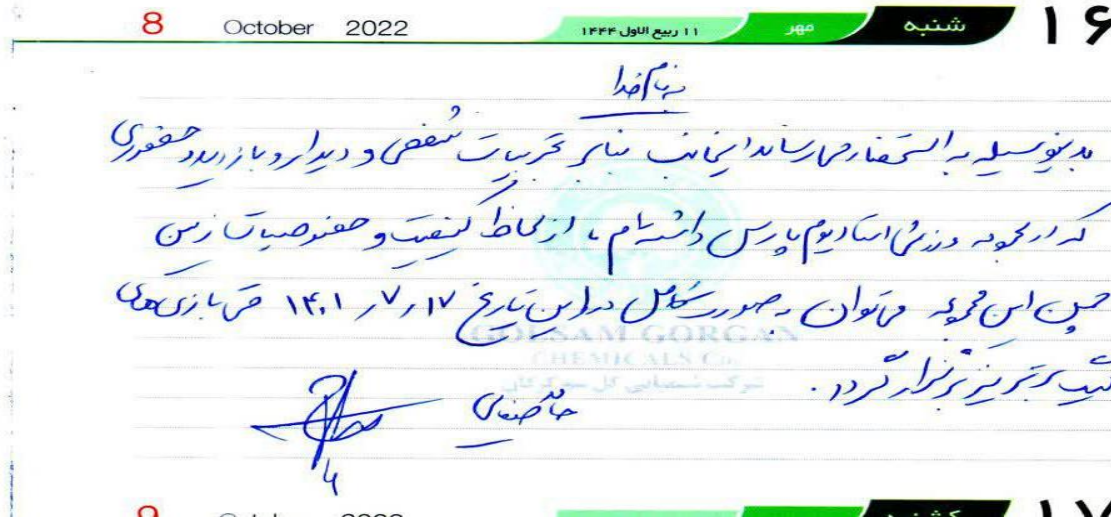 ۱۶ شنبه مهر ۱۱ ربیع الاول ۱۴۴۴ 8 October 2022
به نام خدا
بدینوسیله به استحضار میرساند اینجانب بنابر تجربیات شخصی و دیدار و بازدید حضوری
که از مجموعه ورزشی استادیوم پارس داشته‌ام، از لحاظ کیفیت و خصوصیات زمین
چمن این مجموعه می‌توان به صورت کامل در این تاریخ ۱۴۰۱/۷/۱۷ حتی بازی‌های
لیگ برتر نیز برگزار گردد.
GOLSAM GORGAN
CHEMICALS Co.
شرکت شیمیایی گل سم گرگان
۱۷ یکشنبه 9 October 2022